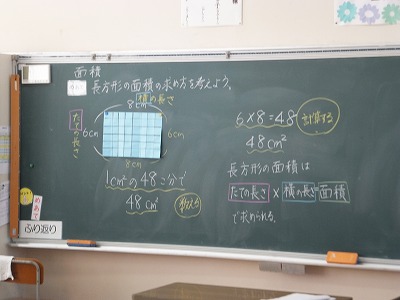 面積
長方形の面積の求め方を考えよう。
横の長さ
8cm
たての長さ
6cm
6cm
8cm
1cm²の48こ分で
48cm²
数える
6×8=48
計算する
48cm²
長方形の面積は
たての長さ×横の長さ=面積
で求められる。
めあて
ふり返り